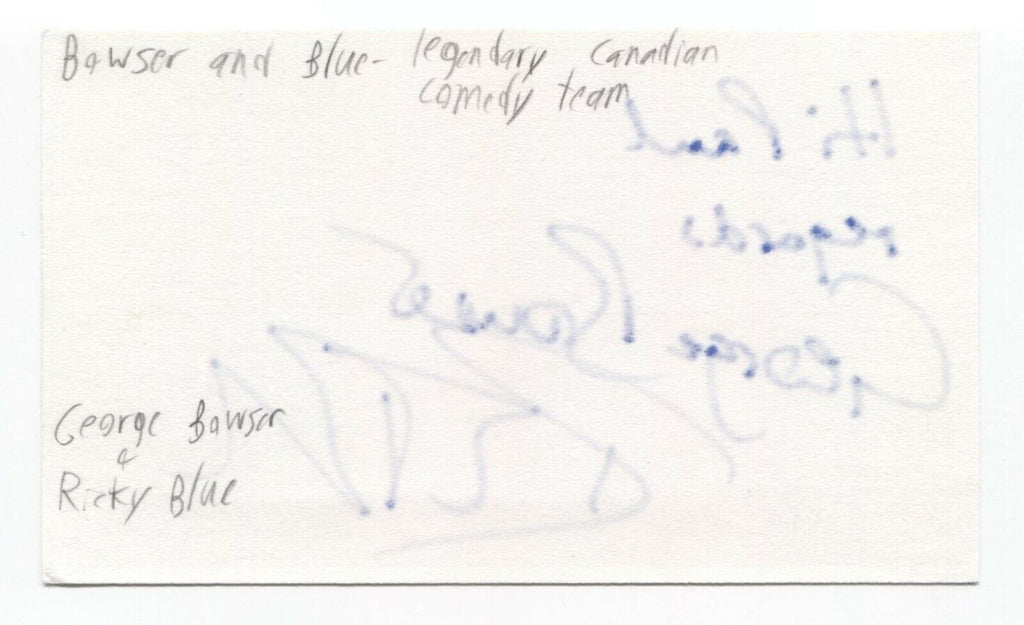 Bowser and Blue- legendary Canadian
comedy team
Hi Paul
regards
George Bowser
George Bowser
&
Ricky Blue